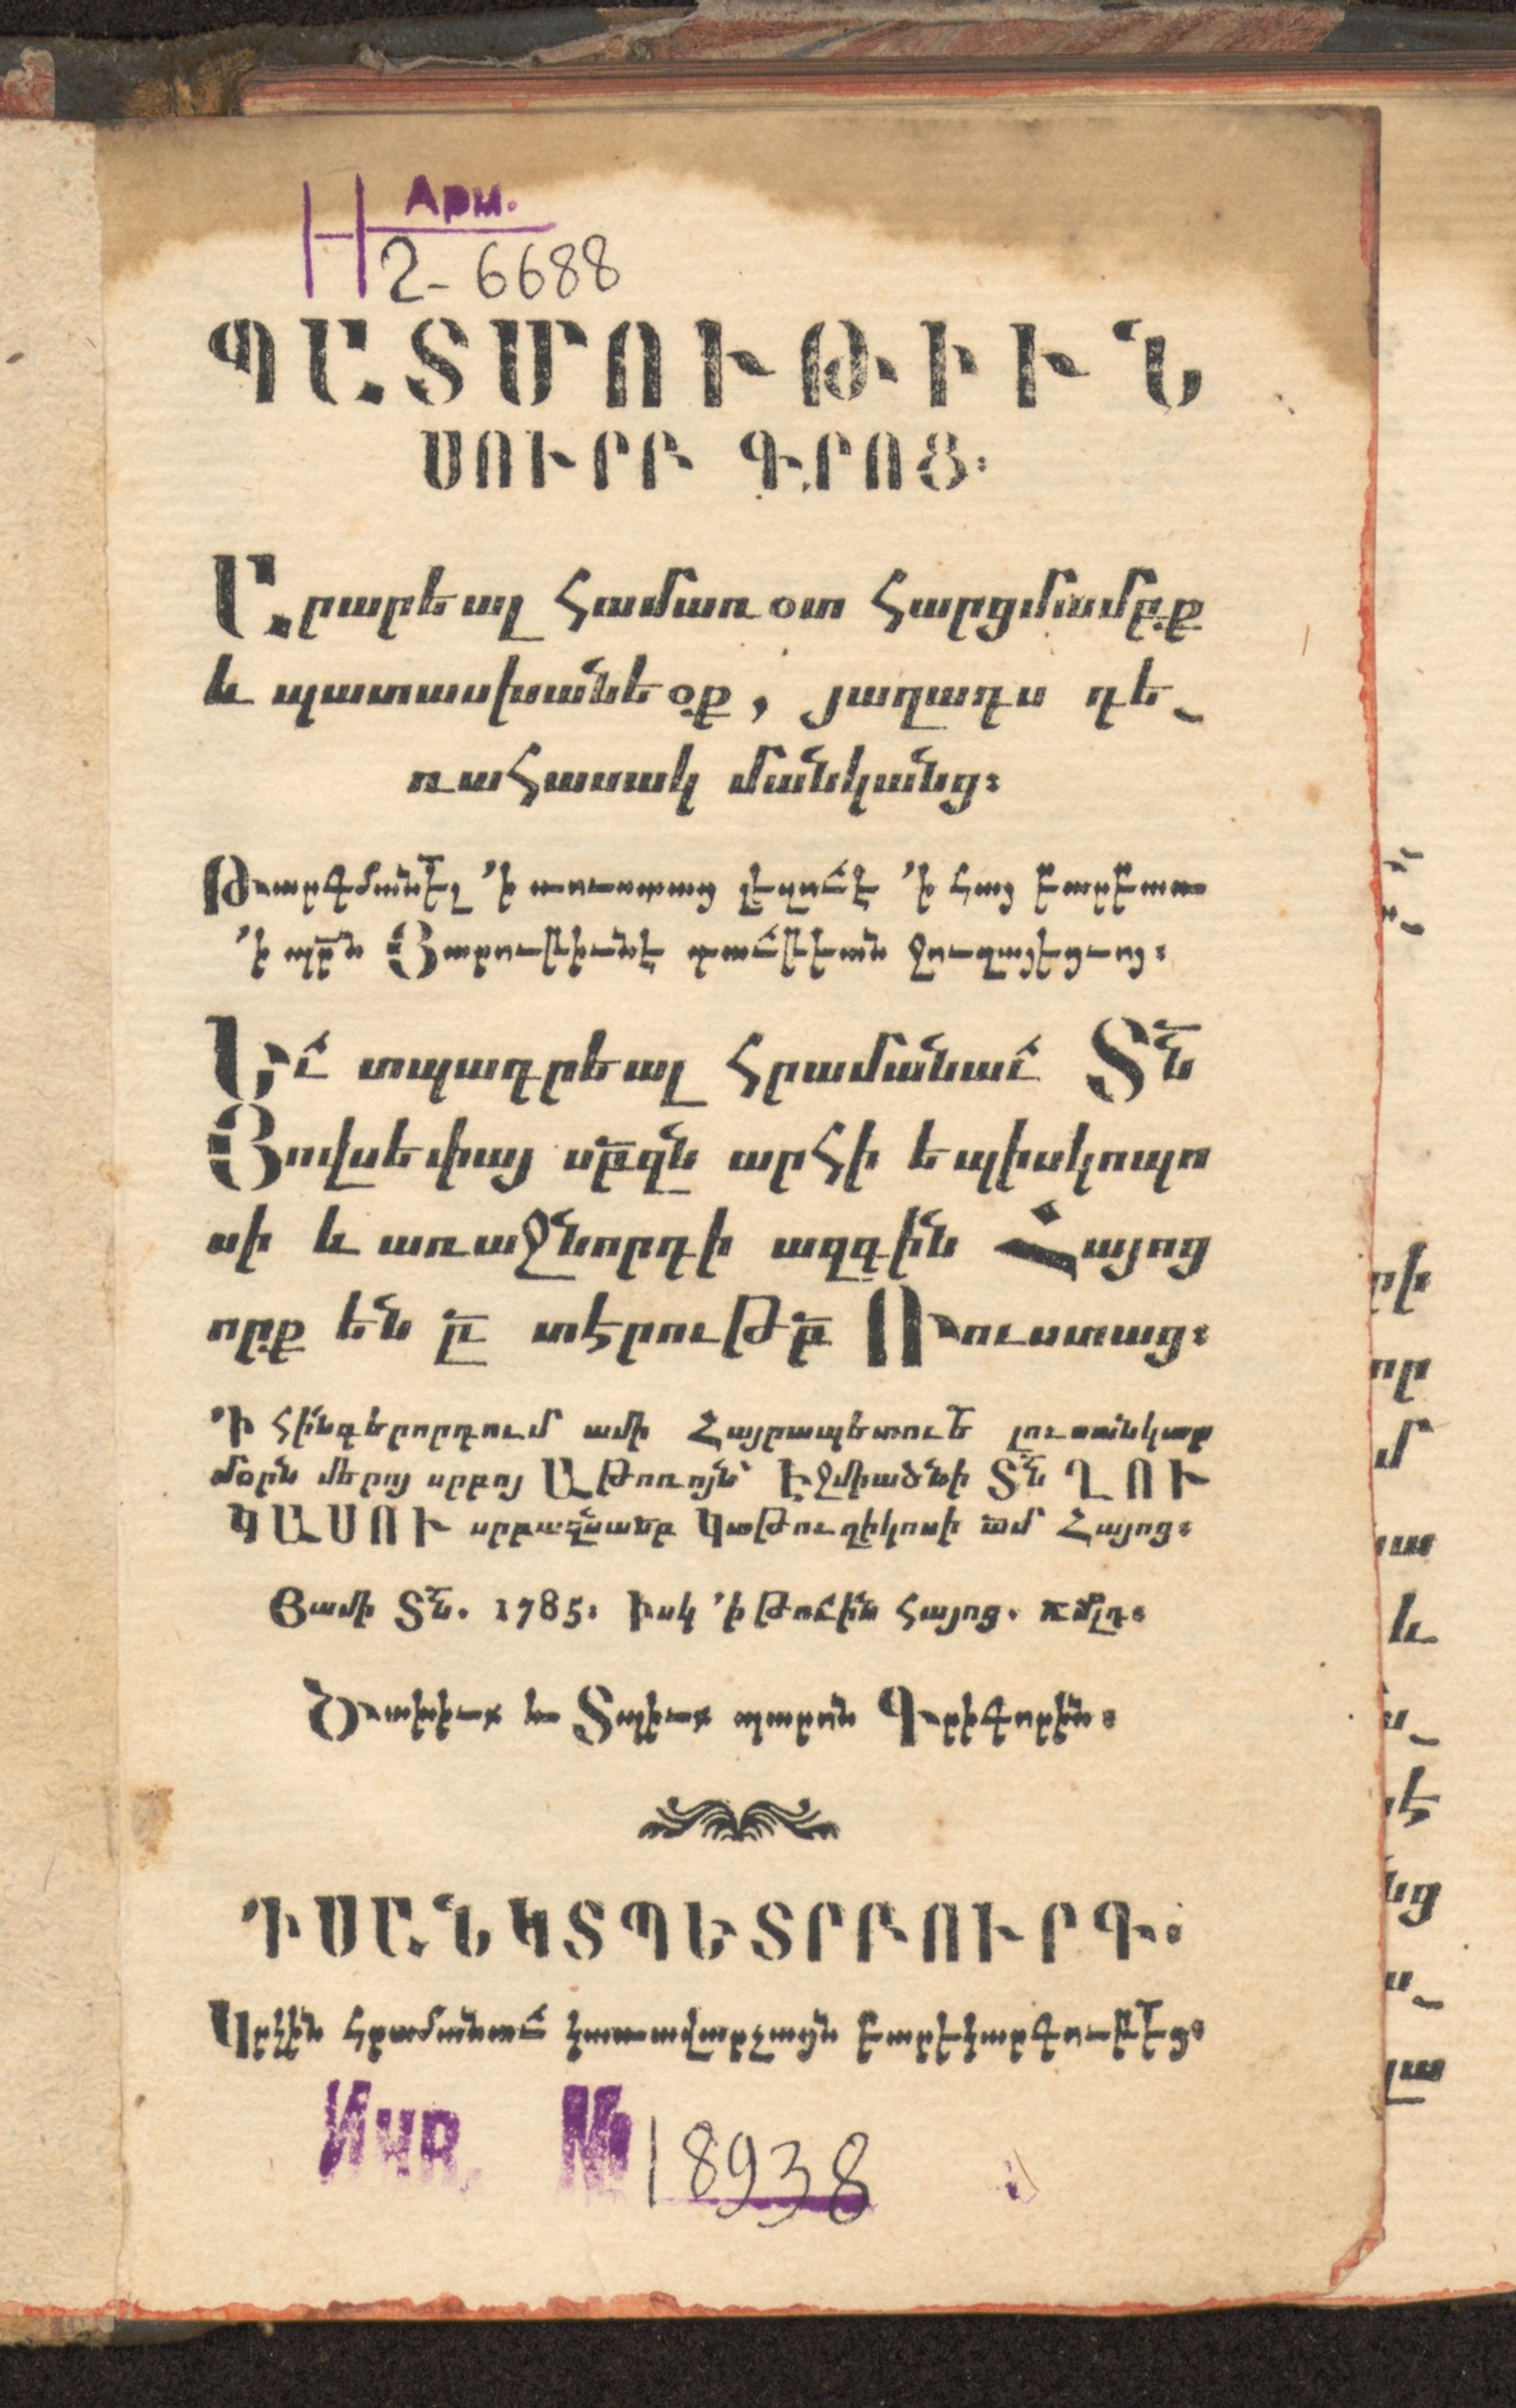 Арм.
Н 2-6688
ՊԱՏՄՈՒԹԻՒՆ
ՍՈՒՐԲ ԳՐՈՑ։
Արարեալ համառօտ հարցմամբք
և պատասխանեօք, յաղագս դե֊
ռահասակ մանկանց։
Թարգմանել ՚ի ռուսաց լեզուէ ՚ի հայ բարբառ
՚ի պրն Յարութիւնէ
Եւ տպագրեալ հրամանաւ Տն
Յովսեփայ սրբզն արհի եպիսկոպո
սի և առաջնորդի ազգին Հայոց
որք են ընդ տէրութբ Ռուստաց։
՚Ի հինգերորդում ամի Հայրապետութե լուսանկար
մօրն մերոյ սրբոյ Աթոռոյն՝ Էջմիածնի Տն ՂՈՒ
ԿԱՍՈՒ սրբազնանբ Կաթուղիկոսի ամ Հայոց։
Յամի Տն. 1785։ Իսկ ՚ի թուին Հայոց. ռմլդ։
Ծախիւք և Տպիւք պարոն Գրիգորին։
ԻՍԱՆԿՏՊԵՏՐԲՈՒՐԳ։
հրամանաւ կառավարչացն բարեկարգութեց։
Инв. № 18938